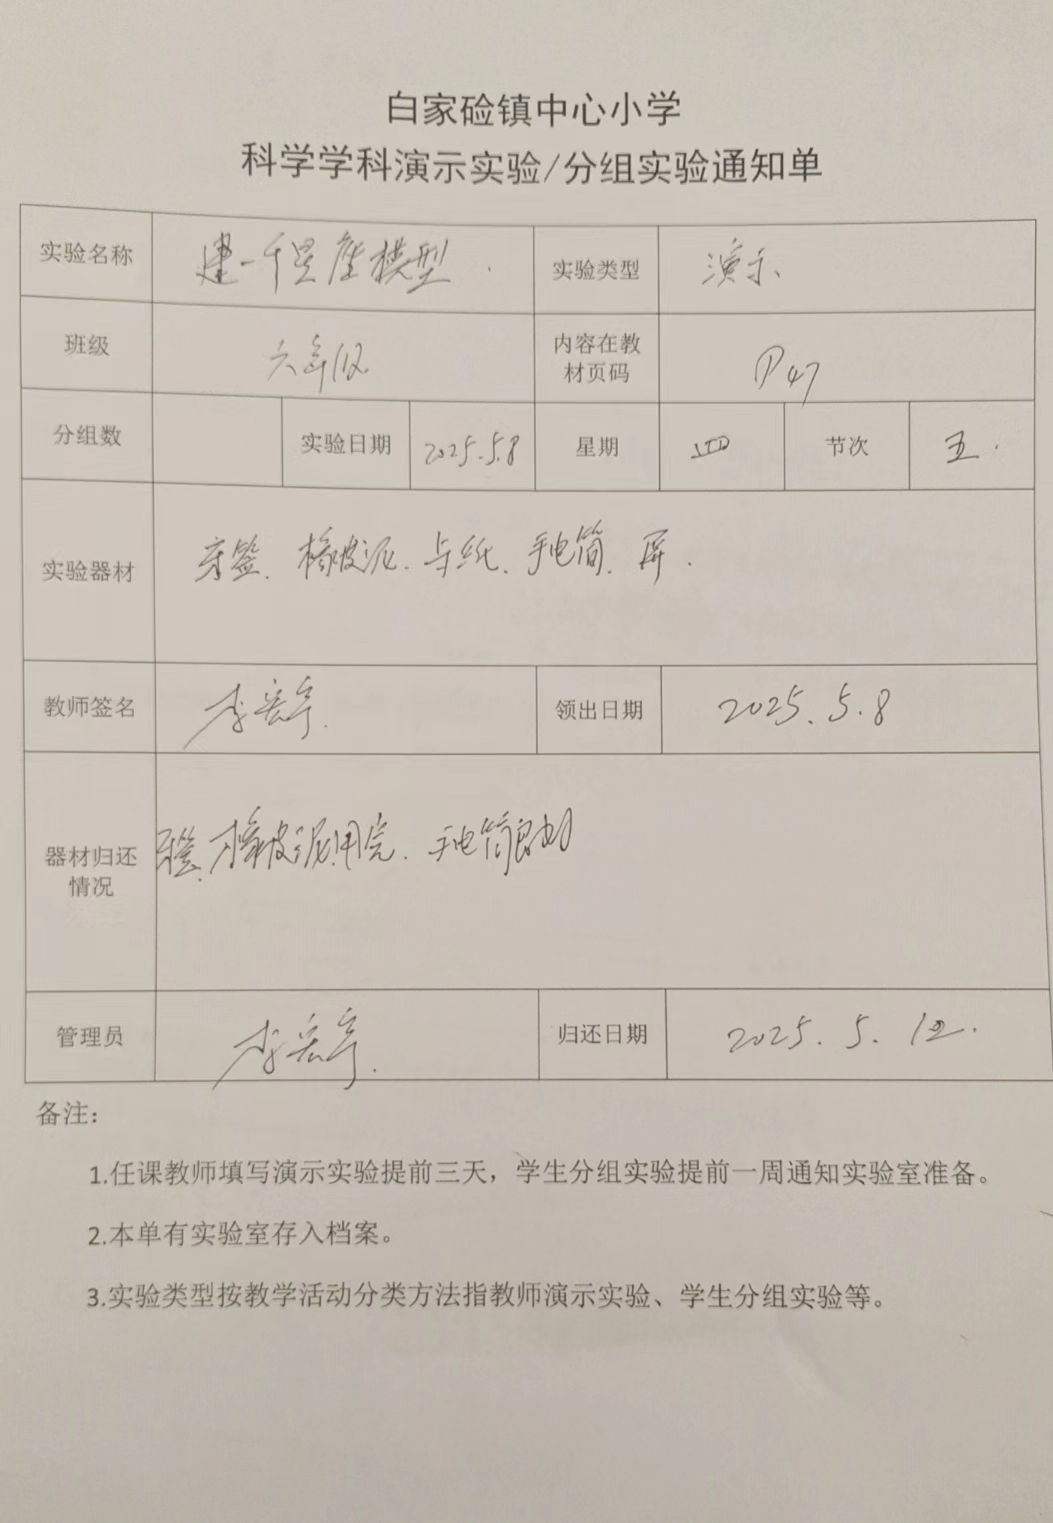 白家硷镇中心小学
科学学科演示实验/分组实验通知单
实验名称 建一个星座模型. 实验类型 演示
班级 六年级 内容在教材页码 P47
分组数 实验日期 2025.5.8 星期 四 节次 五.
实验器材 牙签、橡皮泥、卡纸、手电筒、屏.
教师签名 李宏宇. 领出日期 2025.5.8
器材归还情况 牙签、橡皮泥用完、手电筒良好
管理员 李宏宇. 归还日期 2025.5.12.
备注:
1.任课教师填写演示实验提前三天，学生分组实验提前一周通知实验室准备。
2.本单有实验室存入档案。
3.实验类型按教学活动分类方法指教师演示实验、学生分组实验等。